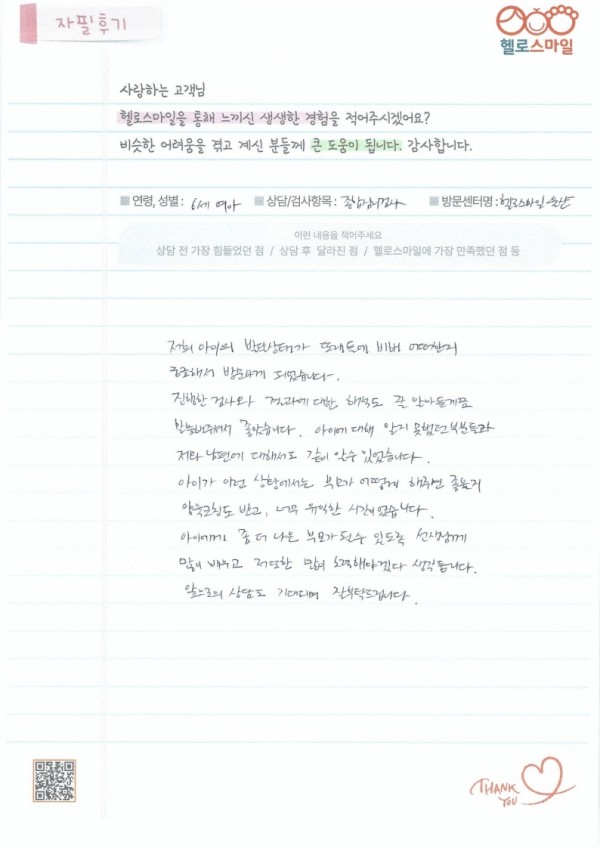 자필후기
헬로스마일
사랑하는 고객님
헬로스마일을 통해 느끼신 생생한 경험을 적어주시겠어요?
비슷한 어려움을 겪고 계신 분들께 큰 도움이 됩니다. 감사합니다.
연령, 성별 : 6세 여아 상담/검사항목 : 종합심리검사 방문센터명 : 헬로스마일
이런 내용을 적어주세요
상담 전 가장 힘들었던 점 / 상담 후 달라진 점 / 헬로스마일에 가장 만족했던 점 등
저희 아이의 발달상태가 또래들에 비해 어떠한지
궁금해서 방문하게 되었습니다.
진행한 검사와 결과에 대한 해석도 잘 알아듣게끔
말씀해주셔서 좋았습니다. 아이에 대해 알지 못했던 부분들과
저와 남편에 대해서도 같이 알수 있었습니다.
아이가 어떤 상황에서는 부모가 어떻게 해주면 좋을지
양육코칭도 받고, 너무 유익한 시간이었습니다.
아이에게 좀 더 나은 부모가 될수 있도록 선생님께
많이 배우고 저또한 많이 노력해야겠다 생각듭니다.
앞으로의 상담도 기대되며 잘부탁드립니다.
THANK YOU